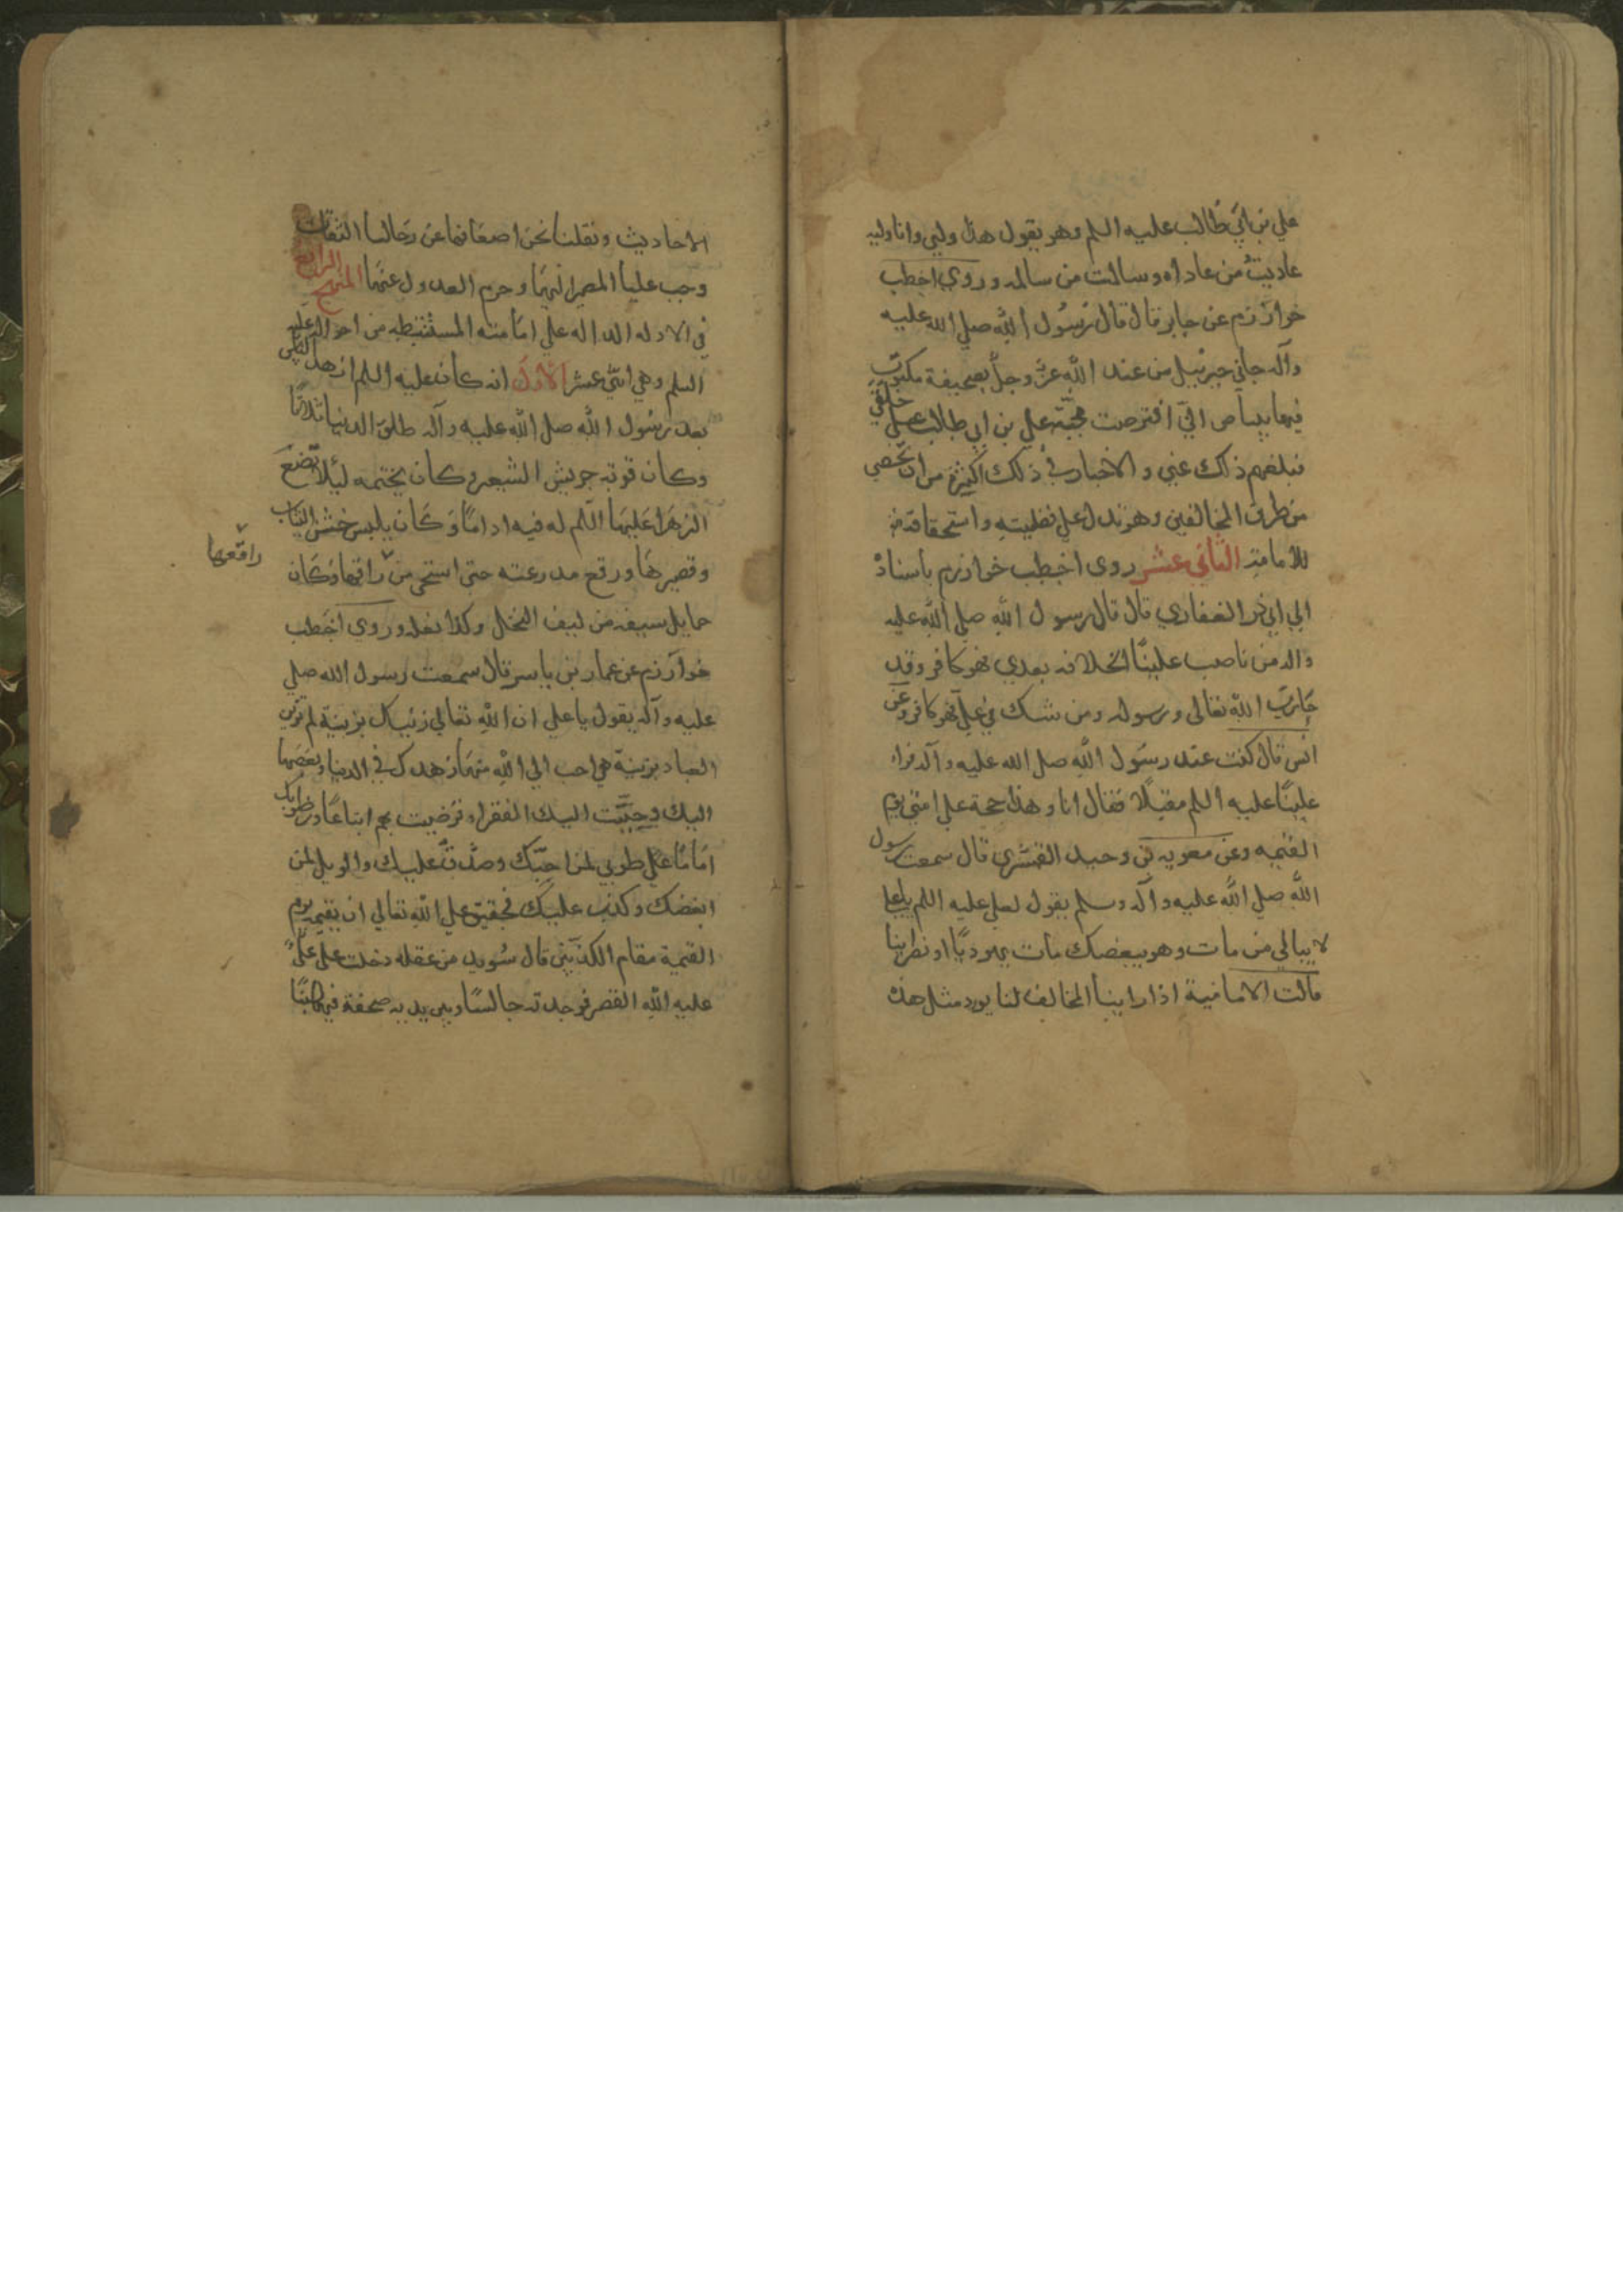 علي بن ابي طالب عليه السلم وهو يقول هذا وليي وانا وليه
عاديت من عاداه وسالمت من سالمه وروي اخطب
خوارزم عن جابر قال قال رسول الله صلي الله عليه
وآله جاني جبرئيل من عند الله عز وجل بصحيفة مكتوب
فيها بياض اني افترضت محبة علي بن ابي طالب علي خلقي
فبلغهم ذلك عني والاخبار في ذلك اكثر من ان تحصي
من طرق المخالفين وهو تدل علي فضليته واستحقاقه
للامامة الثاني عشر روى اخطب خوارزم باسناده
الي ابي ذر الغفاري قال قال رسول الله صلي الله عليه
واله من ناصب عليّا الخلافه بعدي فهو كافر وقد
حارب الله تعالى ورسوله ومن شك في علي فهو كافر وعن
انس قال كنت عند رسول الله صلي الله عليه وآله فراي
عليّا عليه السلم مقبلا فقال انا وهذا حجة علي امتي يوم
القيمه وعن معويه بن وحيد القشري قال سمعت رسول
الله صلي الله عليه وآله وسلم يقول لعلي عليه السلم يا علي
لا يبالي من مات وهو يبغضك مات يهوديّا او نصرانيا
قالت الامامية اذا راينا المخالف لنا يورد مثل هذه
الاحاديث ونقلنا نحن اضعافها عن رجالنا الثقات
وجب علينا المصير اليها وحرم العدول عنها المنهج الرابع
في الادله الداله علي امامته المستنبطه من احواله عليه
السلم وهي اثني عشر الاول انه كان عليه السلم ازهد الناس
بعد رسول الله صلي الله عليه وآله طلق الدنيا ثلاثا
وكان قوته جريش الشعير وكان يختمه ليلا تضع
الزهرا عليها السلم له فيه اداما وكان يلبس خشن الثياب
وقصيرها ورقع مدرعته حتى استحى من راقعها وكان
راقعها
حمايل سيفه من ليف النخل وكذا نعله وروي اخطب
خوارزم عن عمار بن ياسر قال سمعت رسول الله صلي
عليه وآله يقول يا علي ان الله تعالي زينك بزينة لم تزين
العباد بزينة هي احب الي الله منها زهدك في الدنيا وبغضها
اليك وحببت اليك الفقرا فرضيت بهم اتباعا ورضوا بك
اماما علي طوبي لمن احبك وصدق عليك والويل لمن
ابغضك وكذب عليك فحقيق علي الله تعالي ان يقيمه يوم
القيمة مقام الكذابين قال سويد من عقله دخلت علي علي
عليه الله القصر فوجدته جالسا وبين يديه صحفة فيها